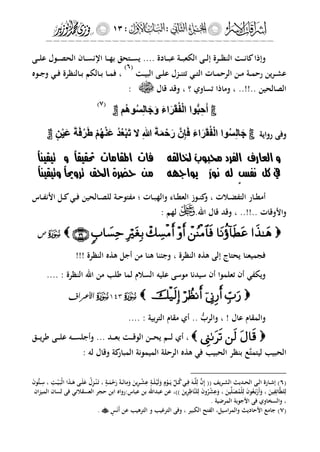 : ١٣ :
وإذا كانت النظرة إلى الكعبة عبادة .... يستحق بها الإنسان الحصول على
عشرين رحمة من الرحمات التي تتنزل على البيت (٦) ، فما بالكم بالنظرة في وجوه
الصالحين ..!!.. ، وماذا تساوي ؟ ، وقد قال :
﴿ أَحِبُّوا الْفُقَرَاءَ وَجَالِسُوهُم ﴾ (٧)
وفى رواية ﴿ جَالِسُوا الْفُقَرَاءَ فَإِنَّ رَحْمَةَ اللهِ لا تَبْعُدُ عَنْهُمْ طَرْفَةَ عَيْنٍ ﴾
و العارف الفرد محبوب لخالقه فات المقامات تحقيقاً و تيقيناً
في كل نفس له نور يواجهه من حضرة الحق ترويحاً وتيقيناً
أمطار التفضلات ، وكنوز العطاء والهبات ؛ مفتوحة للصالحين في كل الأنفاس
والأوقات ..!!.. ، وقد قال الله لهم :
﴿ هَٰذَا عَطَآؤُنَا فَٱمۡنُنۡ أَوۡ أَمۡسِكۡ بِغَيۡرِ حِسَابٖ ﴾ ص
فجميعنا يحتاج إلى هذه النظرة ، وجئنا هنا من أجل هذه النظرة !!!
ويكفي أن تعلموا أن سيدنا موسى عليه السلام لما طلب من الله النظرة : ....
﴿ رَبِّ أَرِنِيٓ أَنظُرۡ إِلَيۡكَ ﴾ ١٤٣ الأعراف
والمقام عال ! ، والربُّ .. أي مقام التربية : ....
﴿ قَالَ لَن تَرَىٰنِي ﴾ ، أي لم يحن الوقت بعد ... وأجلسه على طريق
الحبيب ليتمتَّع بنظر الحبيب في هذه الرحلة الميمونة المباركة وقال له :
(٦) إشارة إلى الحديث الشريف (( إِنَّ لِلَّهِ فِي كُلِّ يَوْمٍ وَلَيْلَةٍ عِشْرِينَ وَمِائَةَ رَحْمَةٍ ، تَنْزِلُ عَلَى هَذَا الْبَيْتِ ، سِتُّونَ
لِلطَّائِفِينَ ، وَأَرْبَعُونَ لِلْمُصَلِّينَ ، وَعِشْرُونَ لِلنَّاظِرِينَ ))، عن عبدالله بن عباس/رواه ابن حجر العسقلاني في لسان الميزان
، والسخاوي في الأجوبة المرضية .
(٧) جامع الأحاديث والمراسيل، الفتح الكبير ، وفى الترغيب و الترهيب عن أنس .